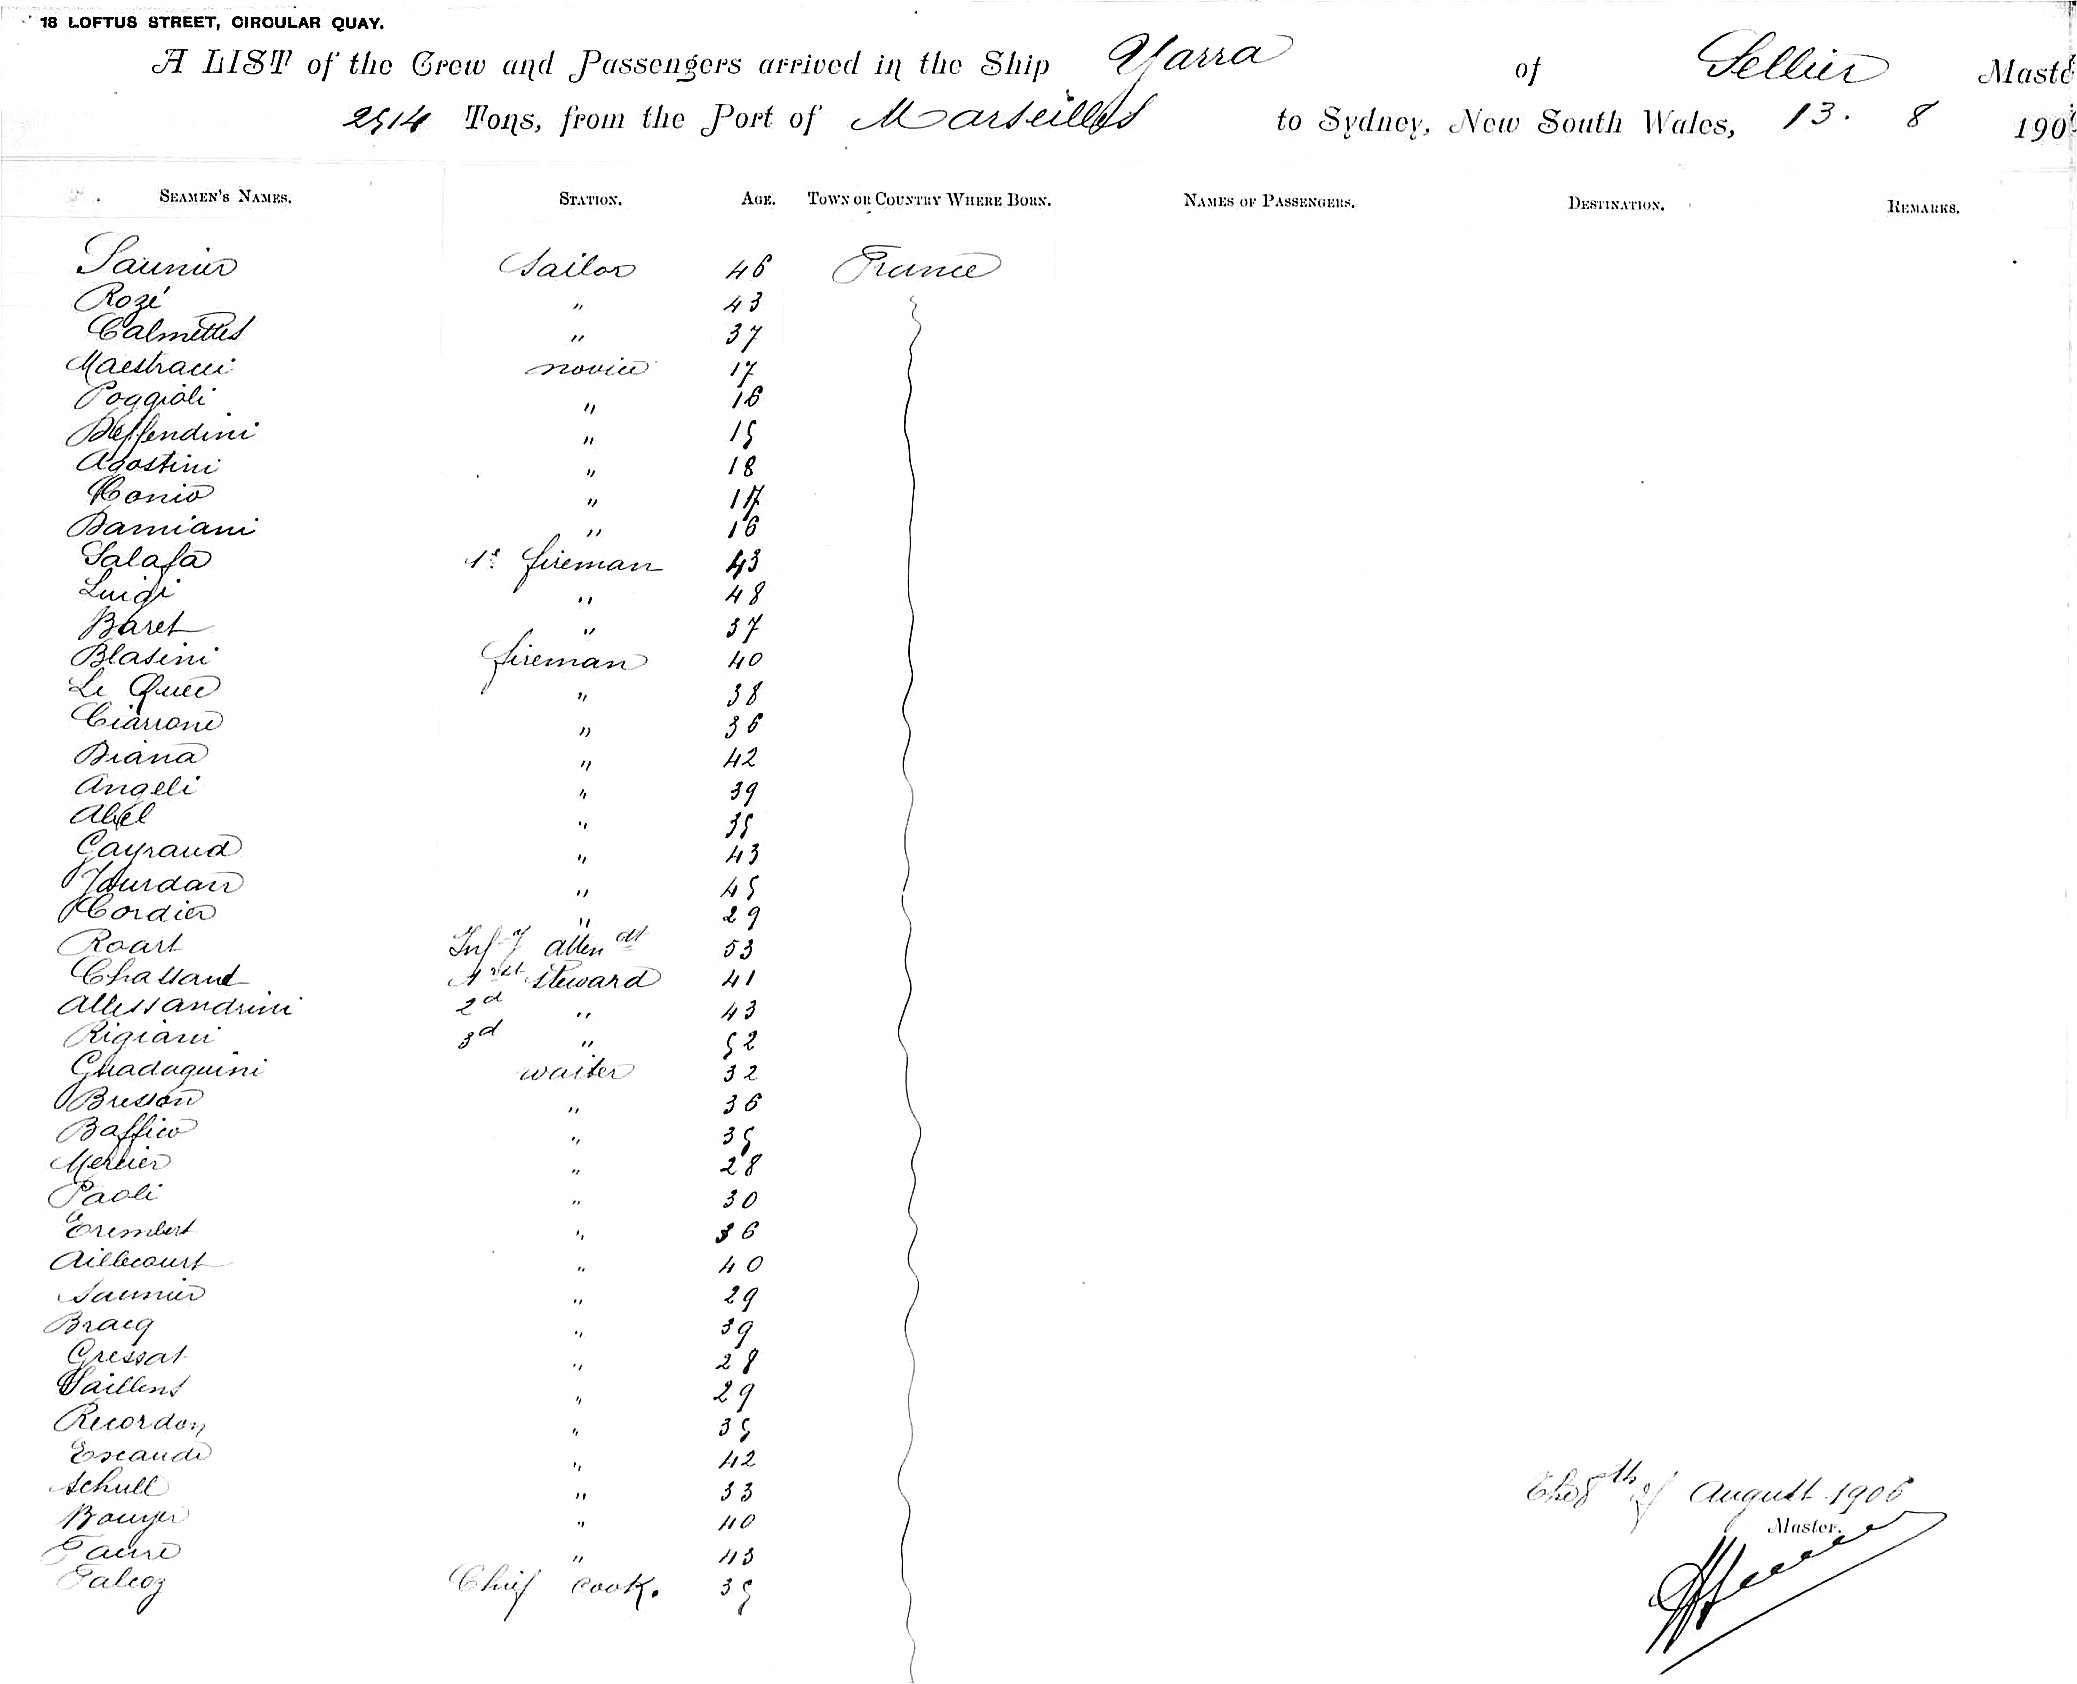 18 LOFTUS STREET, CIRCULAR QUAY.
A LIST of the Crew and Passengers arrived in the Ship Yarra of Sellier Maste
2514 Tons, from the Port of Marseilles to Sydney, New South Wales, 13. 8 190
SEAMEN'S NAMES. STATION. AGE. TOWN OR COUNTRY WHERE BORN. NAMES OF PASSENGERS. DESTINATION. REMARKS.
Saunier Sailor 46 France
Rozé " 43
Calmettes " 37
Maestracci novice 17
Poggioli " 16
Deffendini " 15
Agostini " 18
Conio " 17
Damiani " 16
Salafa 1st fireman 43
Luigi " 48
Baret " 37
Blasini fireman 40
Le Quee " 38
Ciarrone " 36
Diana " 42
Angeli " 39
Abel " 35
Gayraud " 43
Jourdan " 45
Cordier " 29
Roart Infy attendt 53
Chassand 1rst steward 41
Allessandrini 2d " 43
Rigiani 3d " 52
Ghadaquini waiter 32
Bresson " 36
Baffico " 35
Mercier " 28
Paoli " 30
Erembert " 36
Aillecourt " 40
Saunier " 29
Bracq " 39
Gressat " 28
Saillens " 29
Recordon " 35
Escande " 42
Schull " 33
The 8th of August 1906
Bouyer " 40
Master.
Faure " 43
Falcoz Chief cook. 35